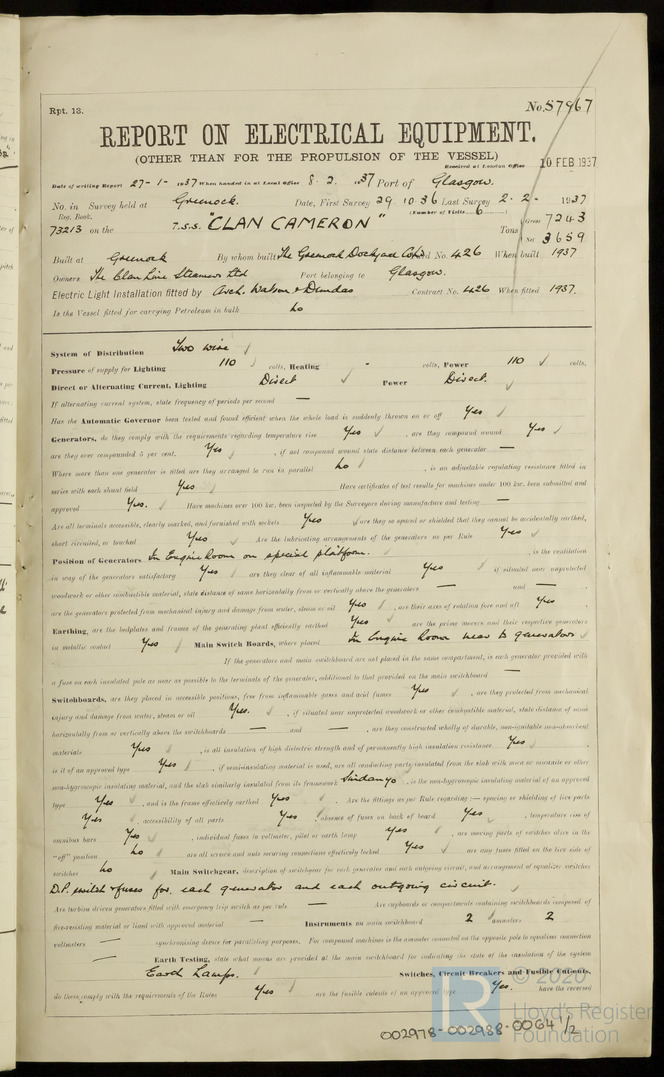 Rpt. 13.
No. 57967
REPORT ON ELECTRICAL EQUIPMENT.
(OTHER THAN FOR THE PROPULSION OF THE VESSEL)
Received at London Office 10 FEB 1937
Date of writing Report 27-1-1937 When handed in at Local Office 8.2.1937 Port of Glasgow.
No. in Survey held at Greenock. Date, First Survey 29.10.36 Last Survey 2.2.1937
Reg. Book. (Number of Visits 6)
73213 on the T.S.S. "CLAN CAMERON" Tons Gross 7243
Net 3659
Built at Greenock By whom built The Greenock Dockyard Co Ltd Yard No. 426 When built 1937
Owners The Clan Line Steamers Ltd Port belonging to Glasgow.
Electric Light Installation fitted by Arch. Watson & Dundas Contract No. 426 When fitted 1937.
Is the Vessel fitted for carrying Petroleum in bulk No
System of Distribution Two wire
Pressure of supply for Lighting 110 volts, Heating - volts, Power 110 volts,
Direct or Alternating Current, Lighting Direct Power Direct.
If alternating current system, state frequency of periods per second —
Has the Automatic Governor been tested and found efficient when the whole load is suddenly thrown on or off Yes
Generators, do they comply with the requirements regarding temperature rise Yes, are they compound wound Yes
are they over compounded 5 per cent. Yes, if not compound wound state distance between each generator —
Where more than one generator is fitted are they arranged to run in parallel No, is an adjustable regulating resistance fitted in
series with each shunt field Yes Have certificates of test results for machines under 100 kw. been submitted and
approved Yes. Have machines over 100 kw. been inspected by the Surveyors during manufacture and testing —
Are all terminals accessible, clearly marked, and furnished with sockets Yes are they so spaced or shielded that they cannot be accidentally earthed,
short circuited, or touched Yes Are the lubricating arrangements of the generators as per Rule Yes
Position of Generators In Engine Room on special platform., is the ventilation
in way of the generators satisfactory Yes are they clear of all inflammable material Yes if situated near unprotected
woodwork or other combustible material, state distance of same horizontally from or vertically above the generators — and —
are the generators protected from mechanical injury and damage from water, steam or oil Yes, are their axes of rotation fore and aft Yes
Earthing, are the bedplates and frames of the generating plant efficiently earthed Yes are the prime movers and their respective generators
in metallic contact Yes Main Switch Boards, where placed In Engine Room near to generators
If the generators and main switchboard are not placed in the same compartment, is each generator provided with
a fuse on each insulated pole as near as possible to the terminals of the generator, additional to that provided on the main switchboard —
Switchboards, are they placed in accessible positions, free from inflammable gases and acid fumes Yes, are they protected from mechanical
injury and damage from water, steam or oil Yes., if situated near unprotected woodwork or other combustible material, state distance of same
horizontally from or vertically above the switchboards — and —, are they constructed wholly of durable, non-ignitable non-absorbent
materials Yes, is all insulation of high dielectric strength and of permanently high insulation resistance Yes
is it of an approved type Yes, if semi-insulating material is used, are all conducting parts insulated from the slab with mica or micanite or other
non-hygroscopic insulating material, and the slab similarly insulated from its framework Sindanyo, is the non-hygroscopic insulating material of an approved
type Yes, and is the frame effectively earthed Yes. Are the fittings as per Rule regarding :— spacing or shielding of live parts
Yes, accessibility of all parts Yes, absence of fuses on back of board Yes, temperature rise of
omnibus bars Yes, individual fuses to voltmeter, pilot or earth lamp Yes, are moving parts of switches alive in the
"off" position No are all screws and nuts securing connections effectively locked Yes are any fuses fitted on the live side of
switches No Main Switchgear, description of switchgear for each generator and each outgoing circuit, and arrangement of equalizer switches
D.P. switch & fuses for each generator and each outgoing circuit.
Are turbine driven generators fitted with emergency trip switch as per rule — Are cupboards or compartments containing switchboards composed of
fire-resisting material or lined with approved material — Instruments on main switchboard 2 ammeters 2
voltmeters — synchronising device for paralleling purposes. For compound machines is the ammeter connected on the opposite pole to equaliser connection
— Earth Testing, state what means are provided at the main switchboard for indicating the state of the insulation of the system
Earth Lamps. Switches, Circuit Breakers and Fusible Cutouts,
do these comply with the requirements of the Rules Yes are the fusible cutouts of an approved type Yes. have the reversed
© 2020
LR
Lloyd's Register
Foundation
002978-002988-0064 1/2